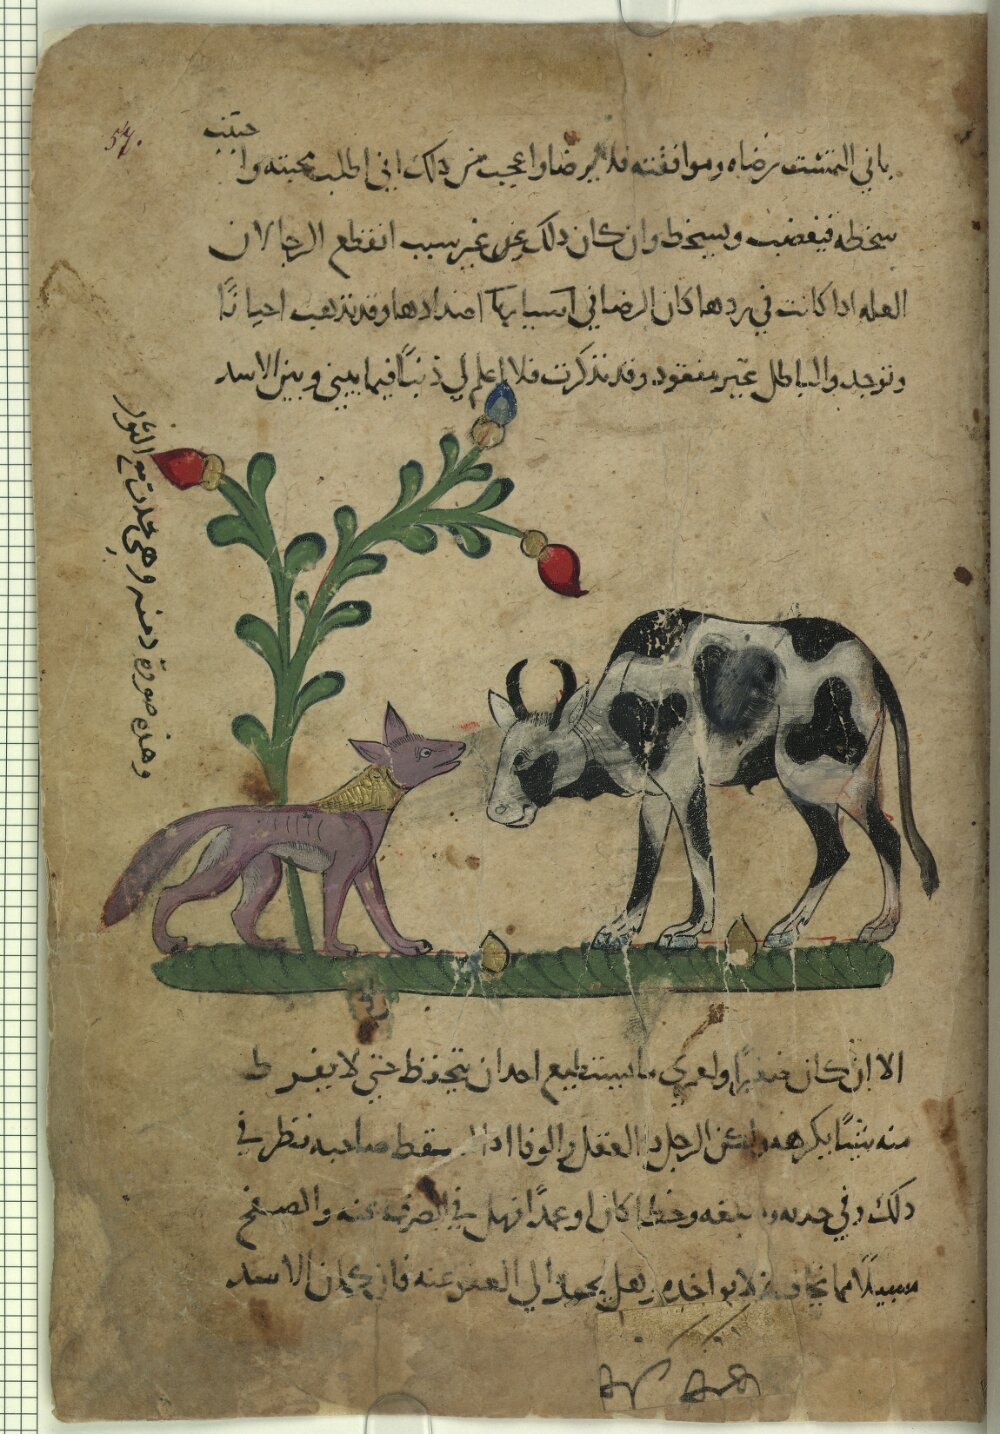 57.
حبيب
باني التمست رضاه وموافقته فلا يرضا واعجب من ذلك اني اطلب محبته وا
سخطه فيغضب ويسخط وان كان ذلك عن غير سبب انقطع الرجا لان
العله اذا كانت في ردها كان الرضا في اضدادها وقد تذهب احيانًا
وتوجد والباطل غير مفقود وقد تذكرت فلا اعلم لي ذنبًا فيما بيني وبين الاسد
وهذه صورة دمنه وهي تحدث مع الثور
الا ان كان صغيرًا ولعمري ما يستطيع احد ان يتحفظ حتى لا يفرط
منه شيئًا يكرهه ولكن الرجل ذا العقل والوفا اذا سقط صاحبه نظر في
ذلك وفي خطا كان او عمدًا فهل في الصرف عنه والصفح
سبيلًا مما يخاف لا يواخذه وهل يجد الى العفو عنه فان كان الاسد